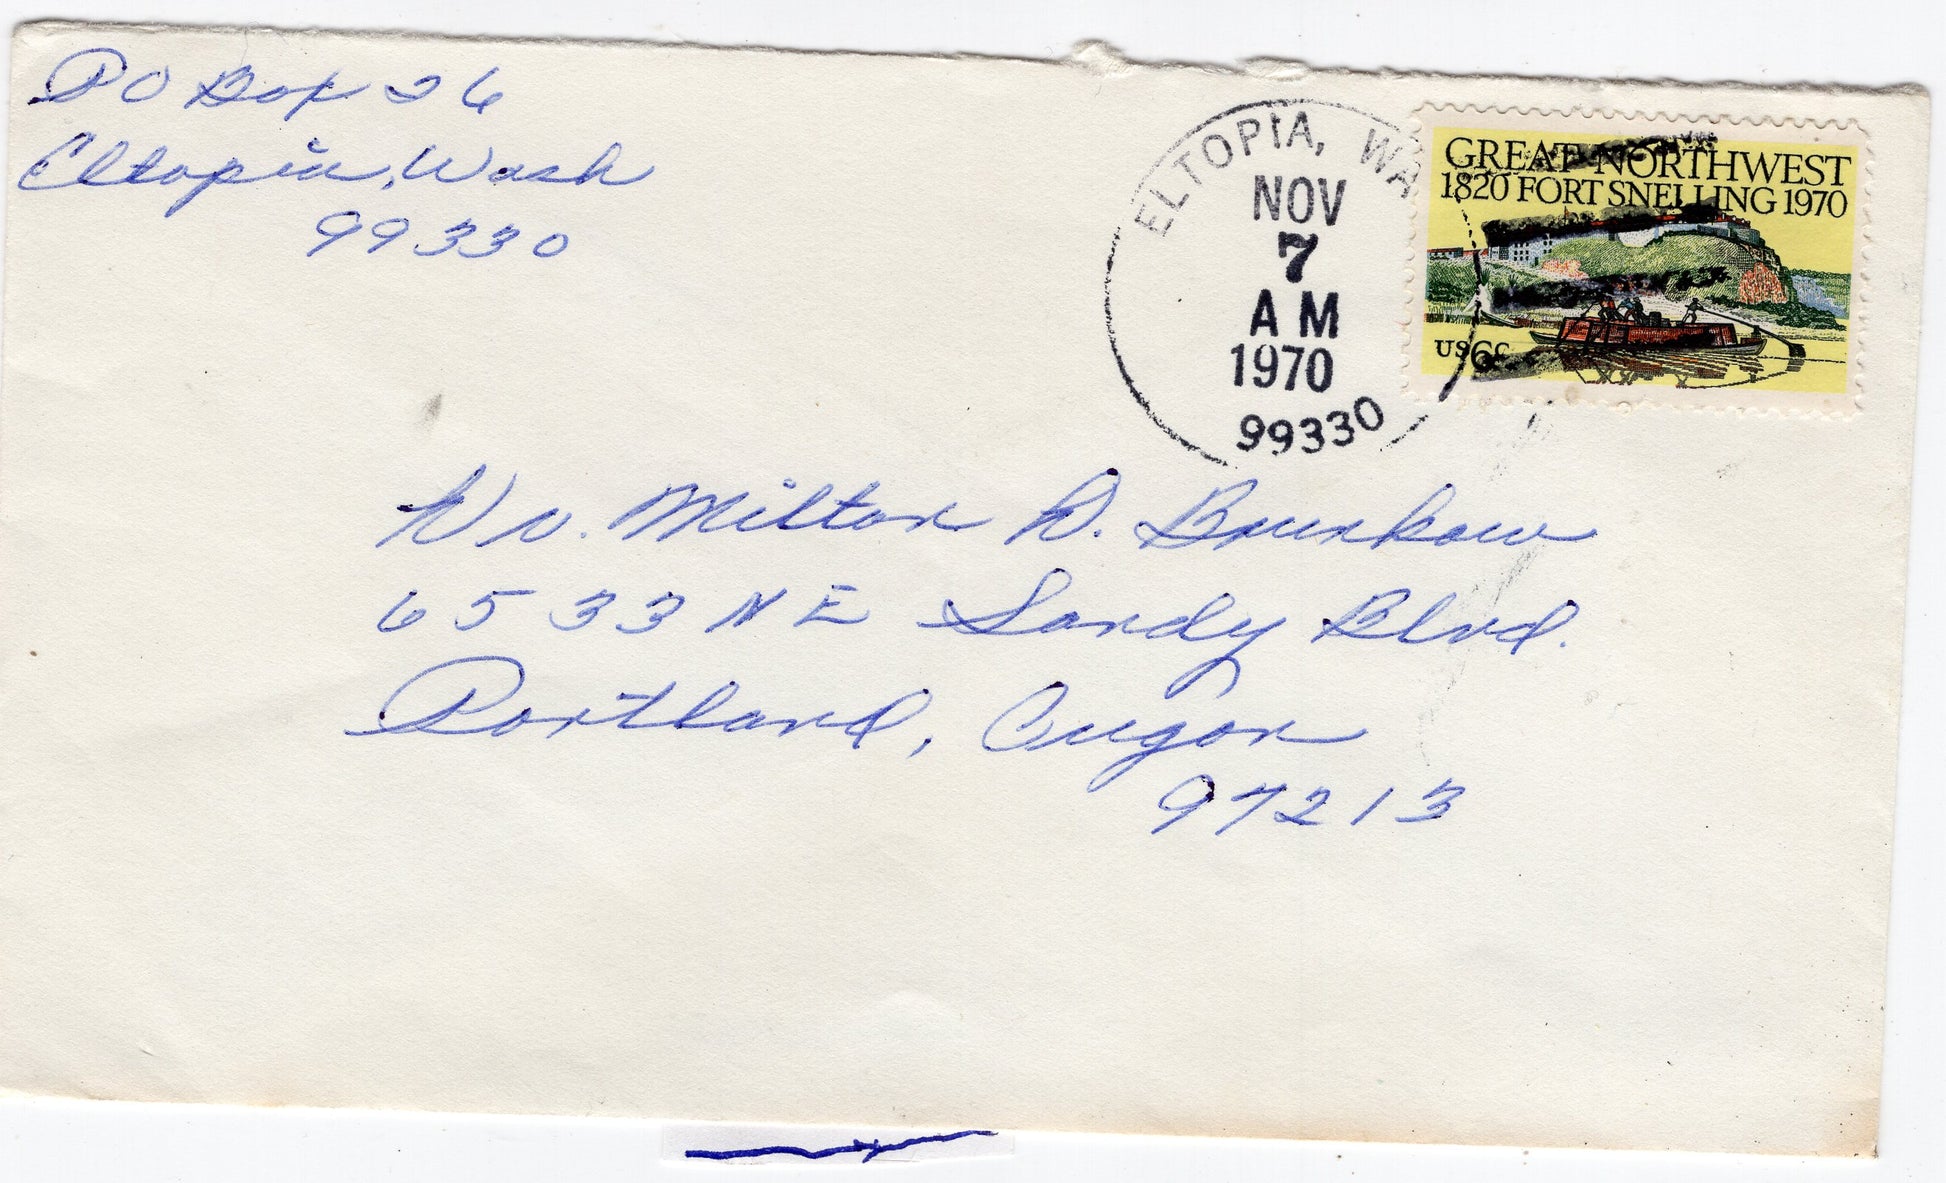 PO Box 26
Eltopia, Wash
99330
ELTOPIA, WA
NOV
7
AM
1970
99330
GREAT NORTHWEST
1820 FORT SNELLING 1970
US 6c
Dr. Milton D. Brunkow
6533 NE Sandy Blvd.
Portland, Oregon
97213